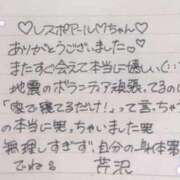 ♡レスポアール♡ちゃん♡
ありがとうございました。
またすぐ会えて本当に嬉しい(:
地震のボランティア頑張てるの
「家で寝てるだけ！」って言っちゃ
本当に
、ちゃいました
無理しすぎず、自分の身体
でねる 芦沢